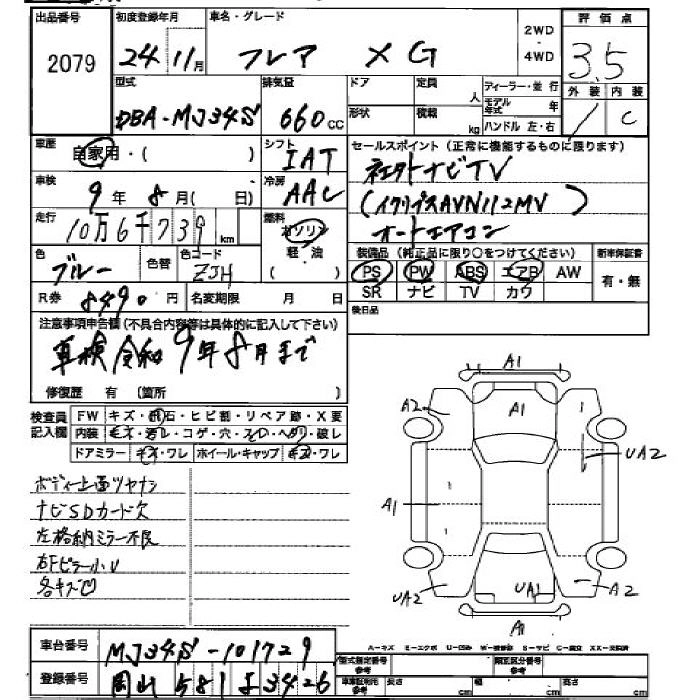 出品番号 初度登録年月 車名・グレード 2WD・4WD 評価点
2079 24年11月 フレア XG 3.5
型式 排気量 ドア 定員 人 ディーラー・並行 外装 内装
DBA-MJ34S 660cc 形状 積載 kg モデル年式 年 ハンドル 左・右 C
車歴 自家用・( ) シフト IAT セールスポイント(正常に機能するものに限ります)
車検 9年8月( 日) 冷房 AAC 社外ナビTV
走行 10万6千739km 燃料 ガソリン 軽・油 (イクリプスAVN112MV)
オートエアコン
色 ブルー 色替 色コード ZJH 装備品(純正品に限り○をつけてください) 新車保証書
PS PW ABS エアB AW 有・無
R券 8490円 名変期限 月 日 SR ナビ TV カワ
注意事項申告欄(不具合内容等は具体的に記入して下さい) 後日品
車検令和9年8月まで
修復歴 有 (箇所 )
検査員記入欄 FW キズ・飛石・ヒビ割・リペア跡・X要
内装 キズ・汚レ・コゲ・穴・スレ・ヘタリ・破レ
ドアミラー キズ・ワレ ホイール・キャップ キズ・ワレ
ボディー上面ツヤナシ
ナビSDカード欠
左格納ミラー不良
右Fピラー小U
各キズ凹
A1
A2 A1
UA2
A1
UA2 UA1 A2
A1
車台番号 MJ34S-101729
A-キズ E-エクボ U-凹み W-補修跡 S-サビ C-腐食 XX-交換済
登録番号 岡山 581 3426 型式指定番号 参考 類別区分番号 参考
車庫証明用 参考 長さ cm 幅 cm 高さ cm